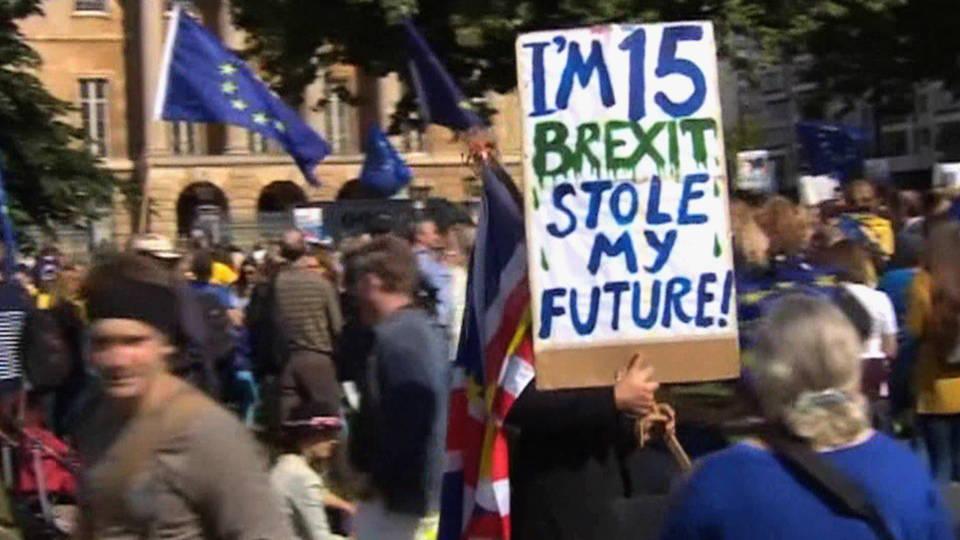 I'M 15
BREXIT
STOLE
MY
FUTURE!